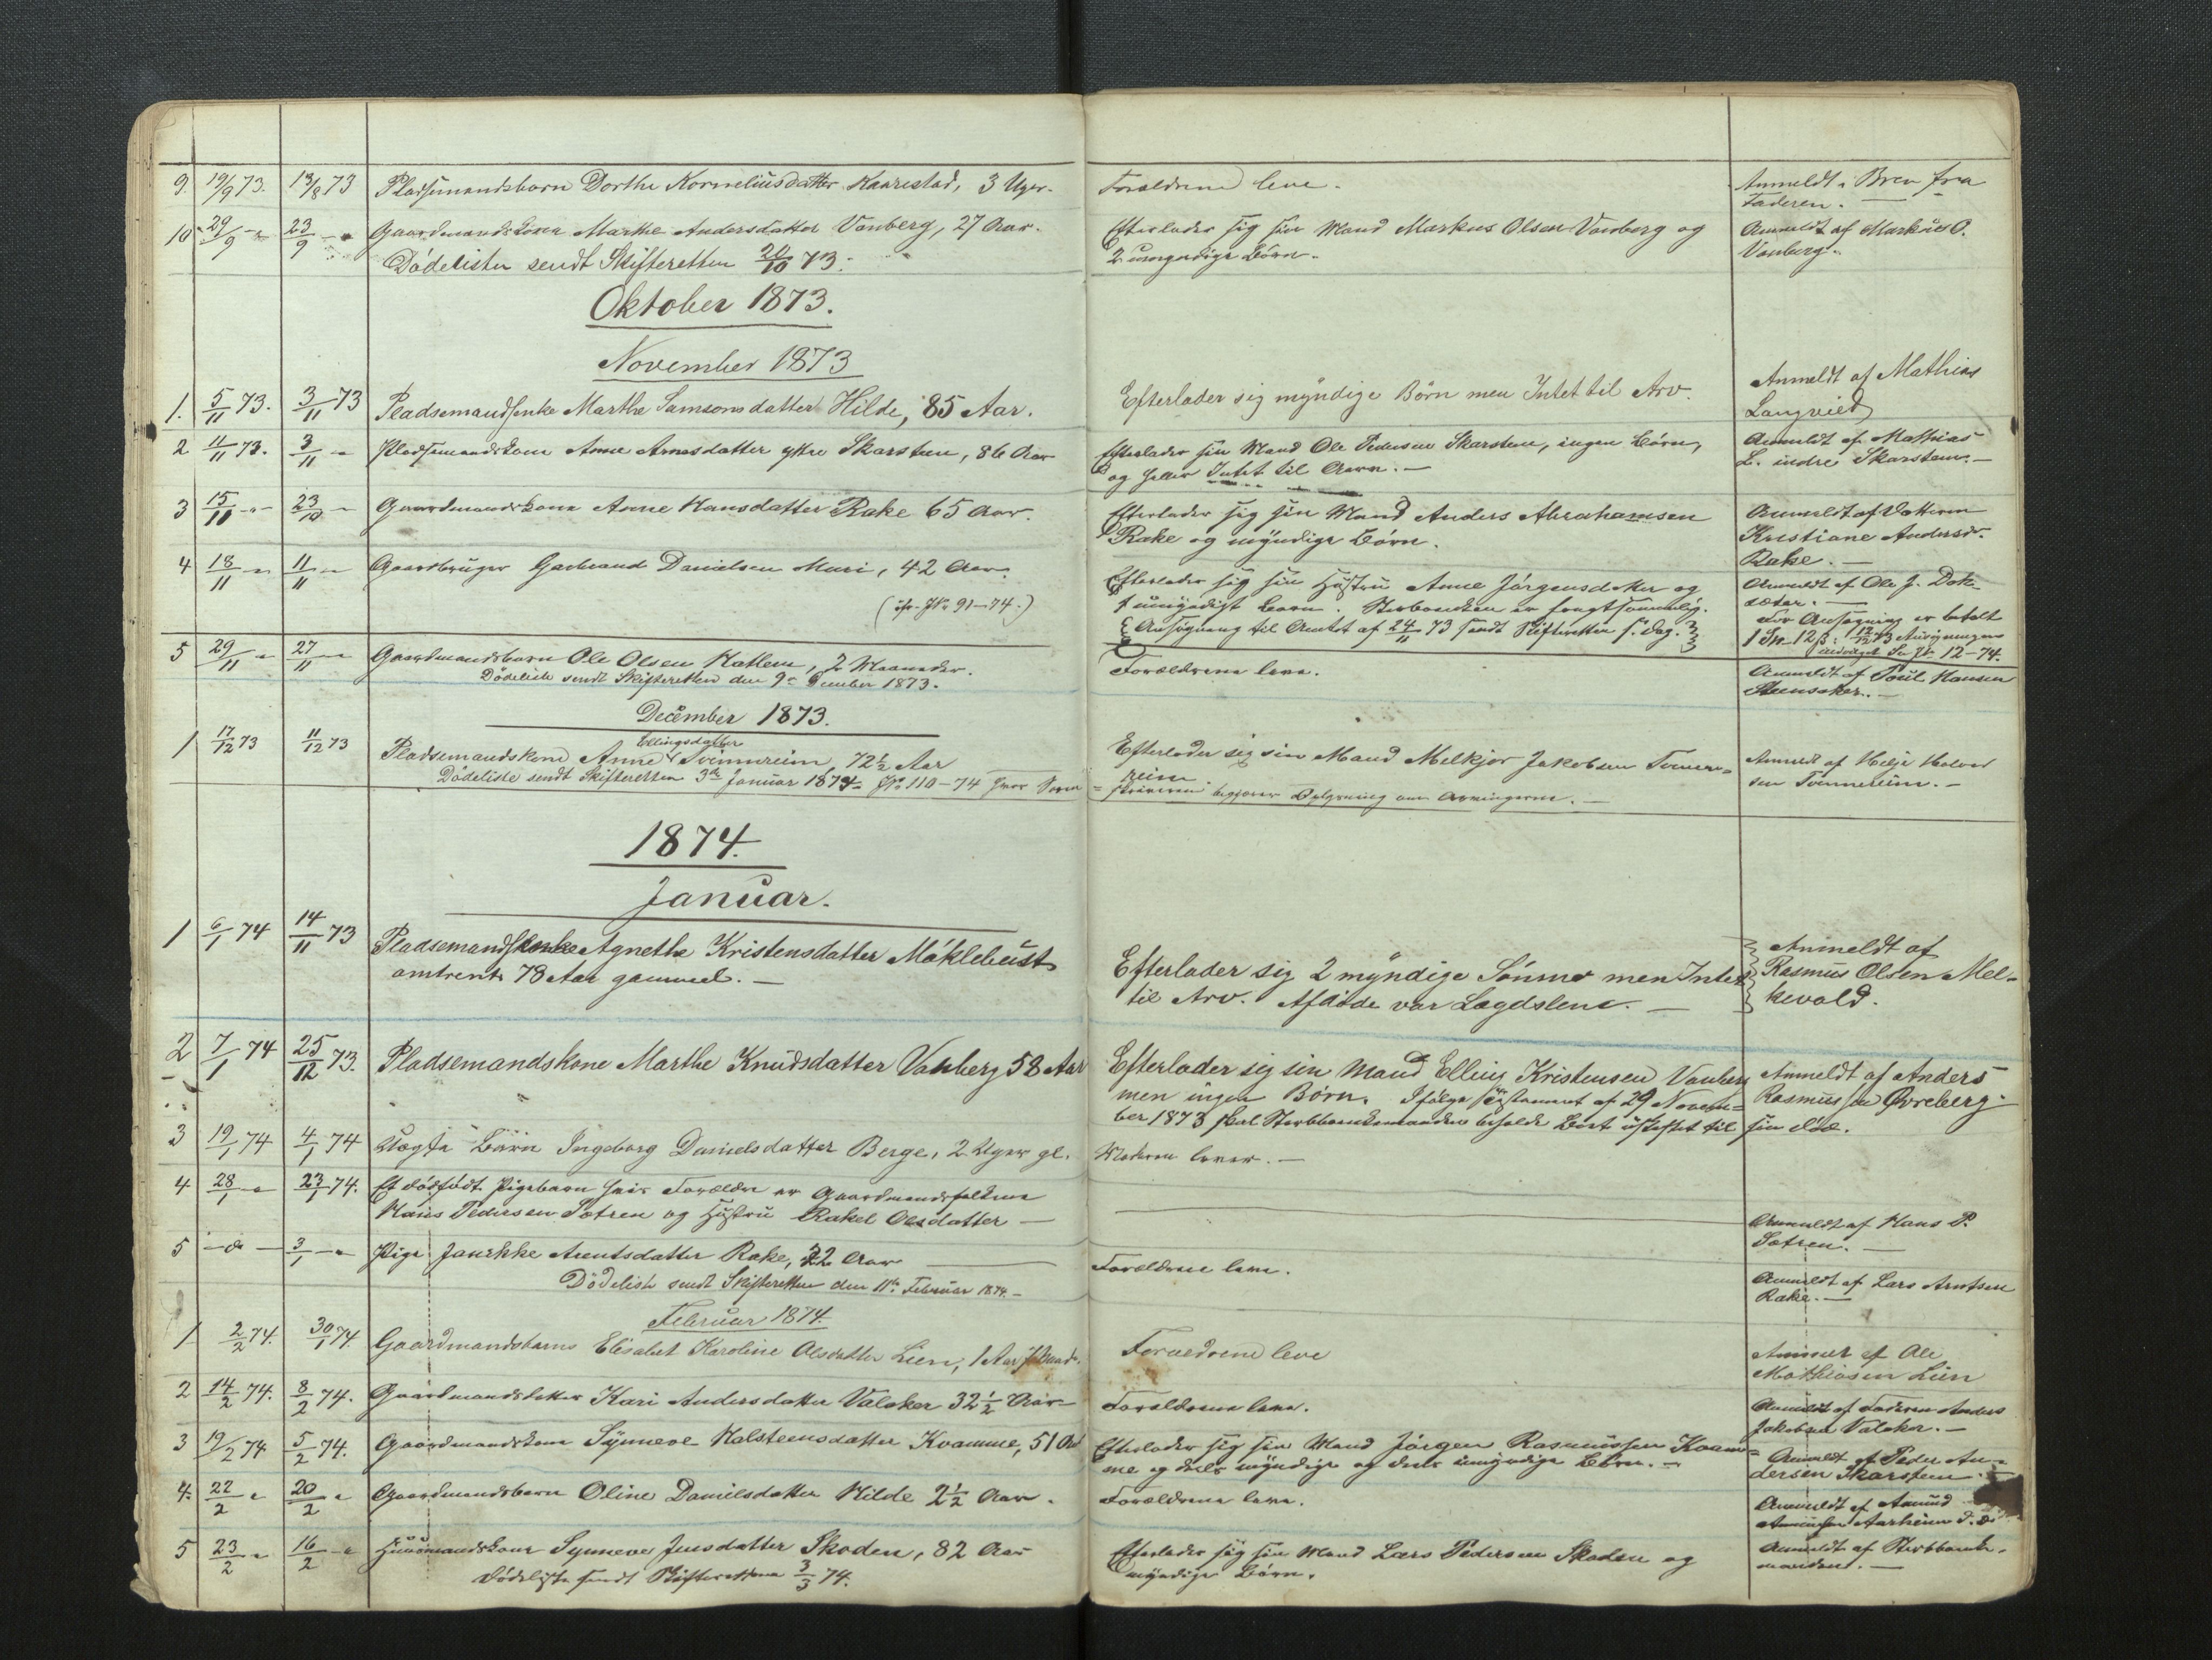 9. 19/9 73. 13/8 73 Pladsemandsbarn Dorthe Korneliusdatter Kaarestad, 3 Uger. Forældrene leve. Anmeldt i Brev fra
Faderen.
10 29/9 - " 23/9 - " Gaardmandskone Marthe Andersdatter Vanberg, 27 Aar. Efterlader sig sin Mand Markus Olsen Vanberg og Anmeldt af Markus O.
Dödelisten sendt Skifteretten 20/10 73. 2 umyndige Börn. Vanberg.
Oktober 1873.
November 1873
1. 5/11 73. 3/11 73 Pladsemandsenke Marthe Samsonsdatter Hilde, 85 Aar. Efterlader sig myndige Börn men Intet til Arv. Anmeldt af Mathias
Langvied
2 11/11 73. 3/11 - " Pladsemandskone Anne Arnesdatter ytre Skarsteen, 86 Aar Efterlader sin Mand Ole Pedersen Skarsteen, ingen Börn, Anmeldt af Mathias
og heller Intet til Arv. - L. indre Skarsteen. -
3 15/11 - " 23/10 - Gaardmandskone Anne Hansdatter Rake 65 Aar. Efterlader sig sin Mand Anders Abrahamsen Anmeldt af Datteren
Rake og myndige Börn. Kristiane Andersdr.
Rake. -
4 18/11 - " 11/11 - " Gaardbruger Gabriand Danielsen Muri, 42 Aar. Efterlader sig sin Hustru Anne Jörgensdatter og Anmeldt af Ole J. Dok-
(cfr. JNr 91-74.) 1 umyndigt Barn. Sterboenken er frugtsommelig. sæter. -
Ansögning til Amtet af 24/11 73 sendt Skifteretten s. Dag. For Ansögning er betalt
1 Sp 12 ß. 12/12 73 Ansögningen
12-74.
5 29/11 - " 27/11 - " Gaardmandsbarn Ole Olsen Hatlem, 2 Maaneder. Forældrene leve. Anmeldt af Poul Hansen
Dödeliste sendt Skifteretten den 9de December 1873. Steensaker. -
December 1873.
1 17/12 73 11/12 73 Pladsemandskone Anne Ellingsdatter Tvinnereim, 72½ Aar Efterlader sig sin Mand Melkjor Jakobsen Tvinne- Anmeldt af Helje Halvor
Dödeliste sendt Skifteretten 3die Januar 1874 - JNr 110-74 hvor Soren- reim. sen Tvinnereim. -
skriveren begjærer Oplysning om Arvingerne. -
1874.
Januar.
1 6/1 74 14/11 73 Pladsemandsenke Agnethe Kristensdatter Möklebust Efterlader sig 2 myndige Sönner men Intet Anmeldt af
omtrent 78 Aar gammel. - til Arv. Afdöde var Lægdslem. - Rasmus Olsen Mel-
kevold.
2 7/1 74 25/12 73. Pladsemandskone Marthe Knudsdatter Vanberg 58 Aar Efterlader sig sin Mand Elling Kristensen Vanberg Anmeldt af Anders
men ingen Börn. Ifölge Testament af 29 Novem- Rasmussen Övreberg.
ber 1873 skal Sterbboenkemanden beholde Boet uskiftet til sin Död.
3 19/1 74 4/1 74 Uægte Barn Ingeborg Danielsdatter Berge, 2 Uger gl. Moderen lever. -
4 28/1 - " 23/1 74. Et dödfödt Pigebarn hvis Forældre er Gaardmandsfolkene
Hans Pedersen Sætren og Hustru Rakel Olsdatter - Anmeldt af Hans P.
Sætren. -
5 - do - 3/1 - " Pige Janikke Arentsdatter Rake, 22 Aar Forældrene leve. Anmeldt af Lars Arntsen
Dödeliste sendt Skifteretten den 11te Februar 1874. - Rake. -
Februar 1874.
1 2/2 74. 30/1 74. Gaardmandsbarns Elisabet Karoline Olsdatter Lien, 1 Aar Forældrene leve Anmeldt af Ole
Mathiasen Lien
2 14/2 74. 8/2 74. Gaardmandsdatter Kari Andersdatter Valaker 32½ Aar Forældrene leve. Anmeldt af Faderen Anders
Jakobsen Valaker. -
3 19/2 74 5/2 74. Gaardmandskone Synneve Halsteensdatter Kvamme, 51 Aar Efterlader sig sin Mand Jörgen Rasmussen Kvam- Anmeldt af Peder An-
me og dels myndige og dels umyndige Börn. - dersen Skarsteen. -
4. 22/2 - " 20/2 - " Gaardmandsbarn Oline Danielsdatter Hilde 2½ Aar. Forældrene leve. Anmeldt af Amund
Aarheim
5 23/2 - " 16/2 - " Huusmandskone Synneve Jensdatter Skaden, 82 Aar Efterlader sig sin Mand Lars Pedersen Skaden og Anmeldt af Sterbboenke-
Dödeliste sendt Skifteretten 3/3 74. myndige Börn. manden. -